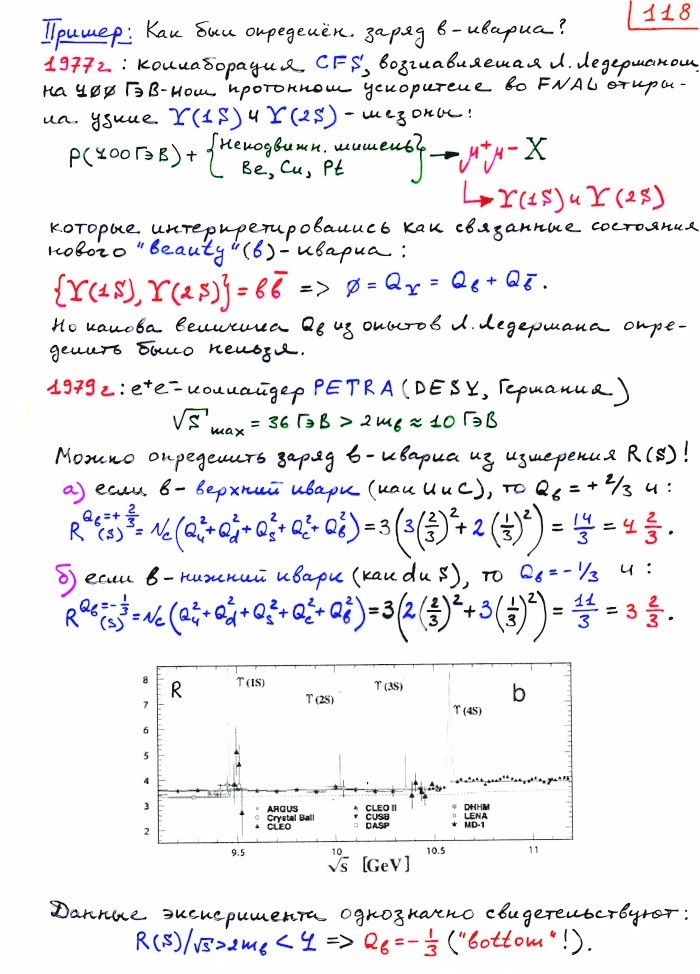 118
Пример: Как был определён. заряд b-кварка?
1977г: коллаборация CFS, возглавляемая Л. Ледерманом,
на 400 ГэВ-ном протонном ускорителе во FNAL откры-
ла узкие ϒ(1S) и ϒ(2S) - мезоны:
p(400ГэВ) + {Неподвижн. мишень Be, Cu, Pt} → μ⁺μ⁻ X
↳ ϒ(1S) и ϒ(2S)
которые интерпретировались как связанные состояния
нового "beauty"(b)-кварка:
{ϒ(1S), ϒ(2S)} = bb̄ => 0 = Q_ϒ = Q_b + Q_b̄.
Но какова величина Q_b из опытов Л. Ледермана опре-
делить было нельзя.
1979г: e⁺e⁻-коллайдер PETRA (DESY, Германия)
√s_max = 36 ГэВ > 2m_b ≈ 10 ГэВ
Можно определить заряд b-кварка из измерения R(s)!
а) если b - верхний кварк (как u и c), то Q_b = +2/3 и:
R^{Q_b=+2/3}(s) = N_c(Q_u² + Q_d² + Q_s² + Q_c² + Q_b²) = 3(3(2/3)² + 2(1/3)²) = 14/3 = 4 2/3.
б) если b - нижний кварк (как d и s), то Q_b = -1/3 и:
R^{Q_b=-1/3}(s) = N_c(Q_u² + Q_d² + Q_s² + Q_c² + Q_b²) = 3(2(2/3)² + 3(1/3)²) = 11/3 = 3 2/3.
R ϒ(1S) ϒ(2S) ϒ(3S) ϒ(4S) b
8
7
6
5
4
3
2
ARGUS CLEO II DHHM
Crystal Ball CUSB LENA
CLEO DASP MD-1
9.5 10 10.5 11
√s [GeV]
Данные эксперимента однозначно свидетельствуют:
R(s)/√s>2m_b < 4 => Q_b = -1/3 ("bottom"!).